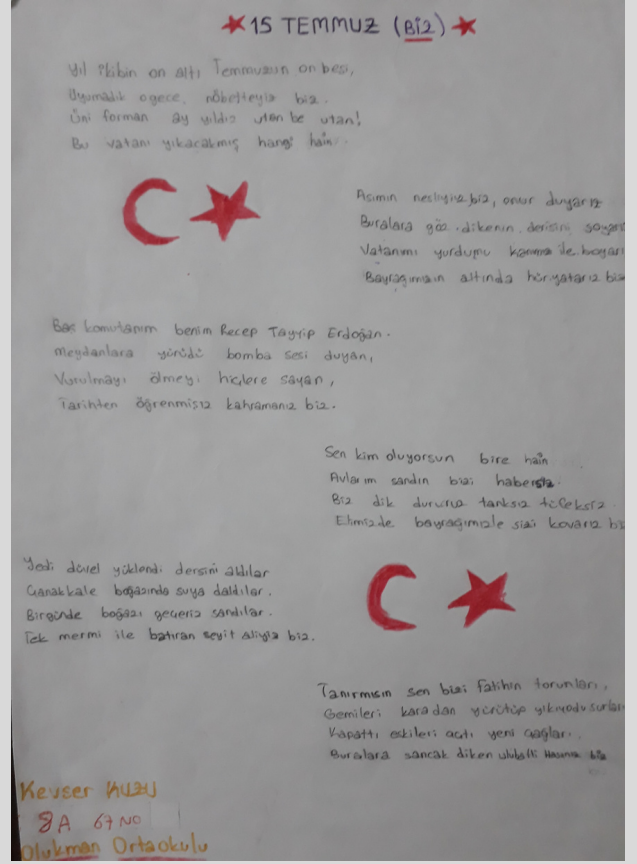 15 TEMMUZ (BİZ)
Yıl ikibin on altı Temmuzun on beşi,
Uyumadık ogece, nöbetteyiz biz.
Üni forman ay yıldız utan be utan!
Bu vatanı yıkacakmış hangi hain.
Asımın nesliyiz biz, onur duyarız
Buralara göz dikenin derisini soyarız
Vatanımı yurdumu kanımla ile boğarı
Bayrağımızın altında hür yatarız biz
Baş komutanım benim Recep Tayyip Erdoğan.
Meydanlara yürüdü bomba sesi duyan,
Vurulmayı ölmeyi hiçlere sayan,
Tarihten öğrenmişiz kahramanız biz.
Sen kim oluyorsun bire hain
Avlarım sandın bizi habersiz.
Biz dik dururuz tanksız tüfeksiz.
Elimizde bayrağımızla sizi kovarız bi
Yedi düvel yüklendi dersini aldılar
Çanakkale boğazında suya daldılar.
Birgünde boğazı geçeriz sandılar.
Tek mermi ile batıran seyit aliyiz biz.
Tanırmısın sen bizi fatihin torunları,
Gemileri karadan yürütüp yıkıyodu surları
Kapattı eskileri açtı yeni çağlar.
Buralara sancak diken ulubatlı Hasanız biz
Kevser KUZU
8A 67 NO
Olukman Ortaokulu